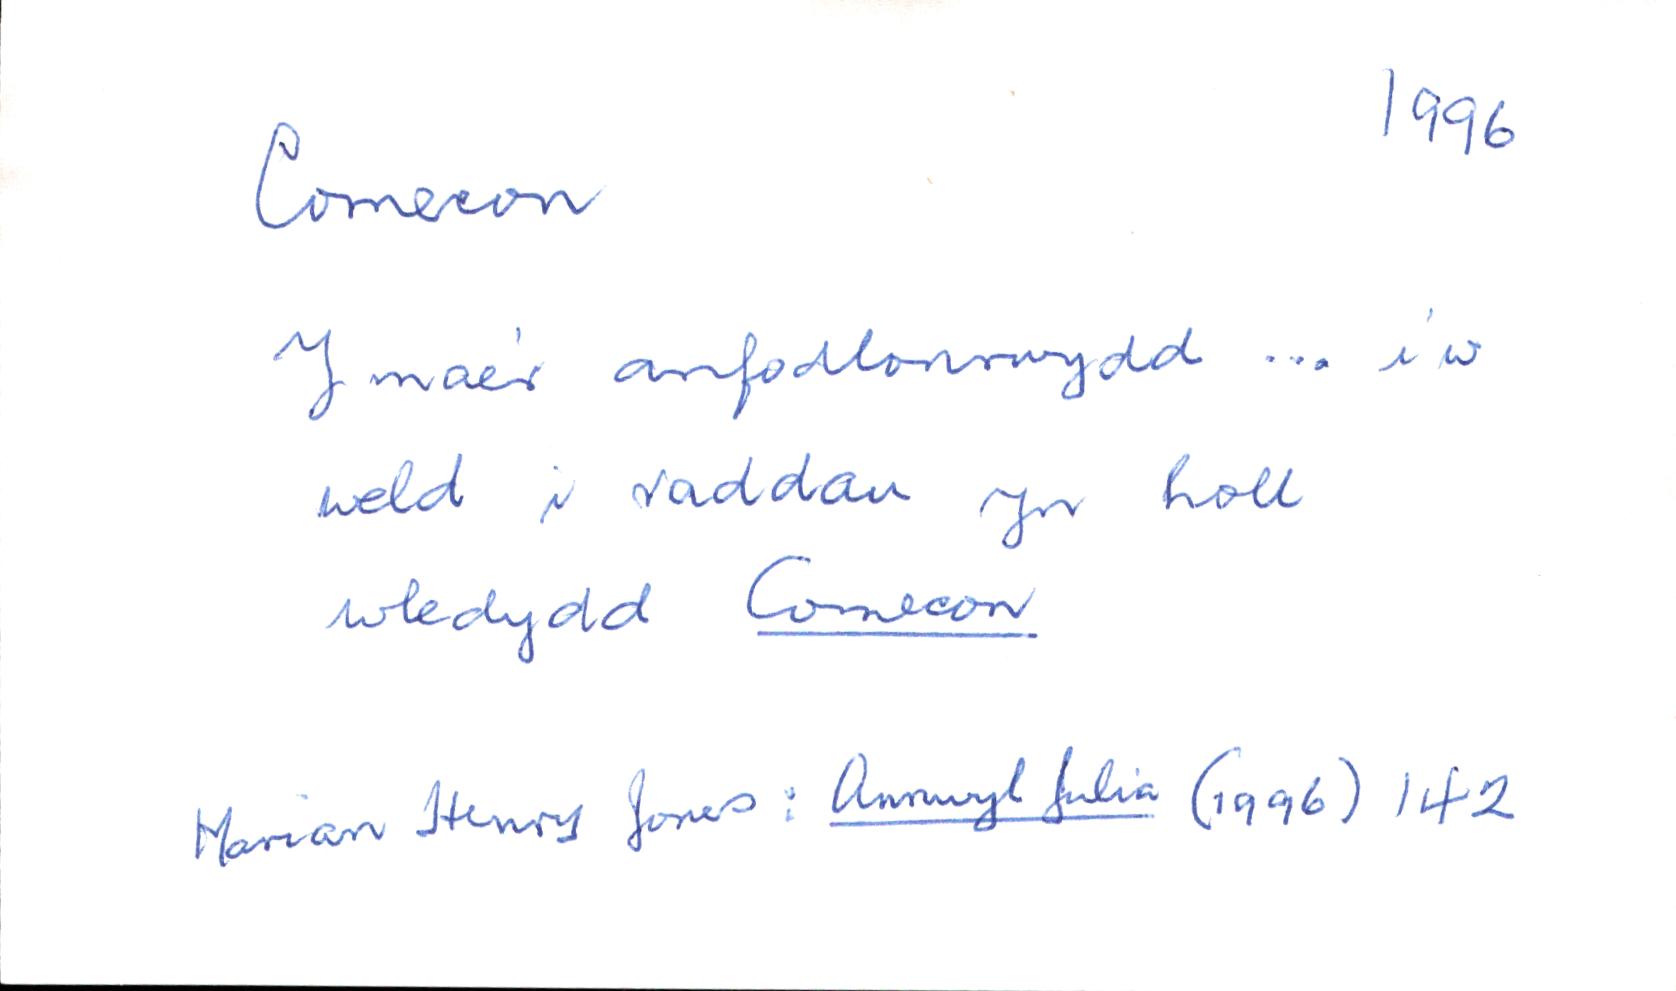 1996
Comecon
Y mae'r anfodlonrwydd ... i'w
weld i raddau yn holl
wledydd Comecon
Marian Henry Jones: Annwyl Julia (1996) 142